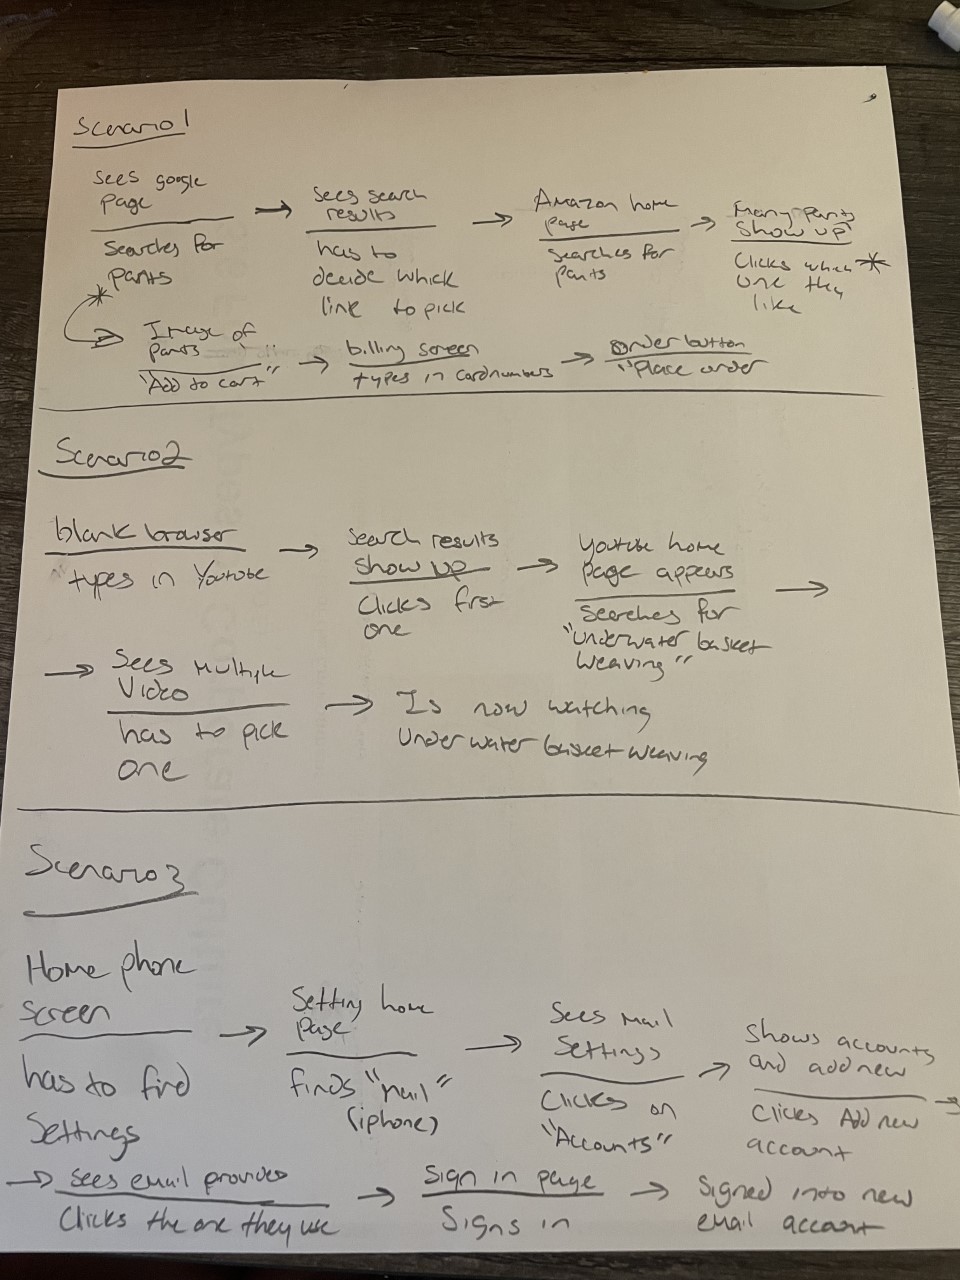 Scenario 1
Sees google
page
Searches for
pants
Sees search
results
has to
decide which
link to pick
Amazon home
page
Searches for
pants
Many pants
Show up
Clicks when
one they
like
Image of
pants
"Add to cart"
billing screen
types in card numbers
Order button
"Place order
Scenario 2
blank browser
types in Youtube
Search results
show up
Clicks first
one
Youtube home
page appears
Searches for
"Underwater basket
weaving"
Sees Multiple
Video
has to pick
one
Is now watching
Underwater basket weaving
Scenario 3
Home phone
screen
has to find
Settings
Setting home
page
finds "mail"
(iphone)
Sees Mail
Settings
Clicks on
"Accounts"
Shows accounts
and add new
Clicks Add new
account
Sees email provider
Clicks the one they use
Sign in page
Signs in
Signed into new
email account